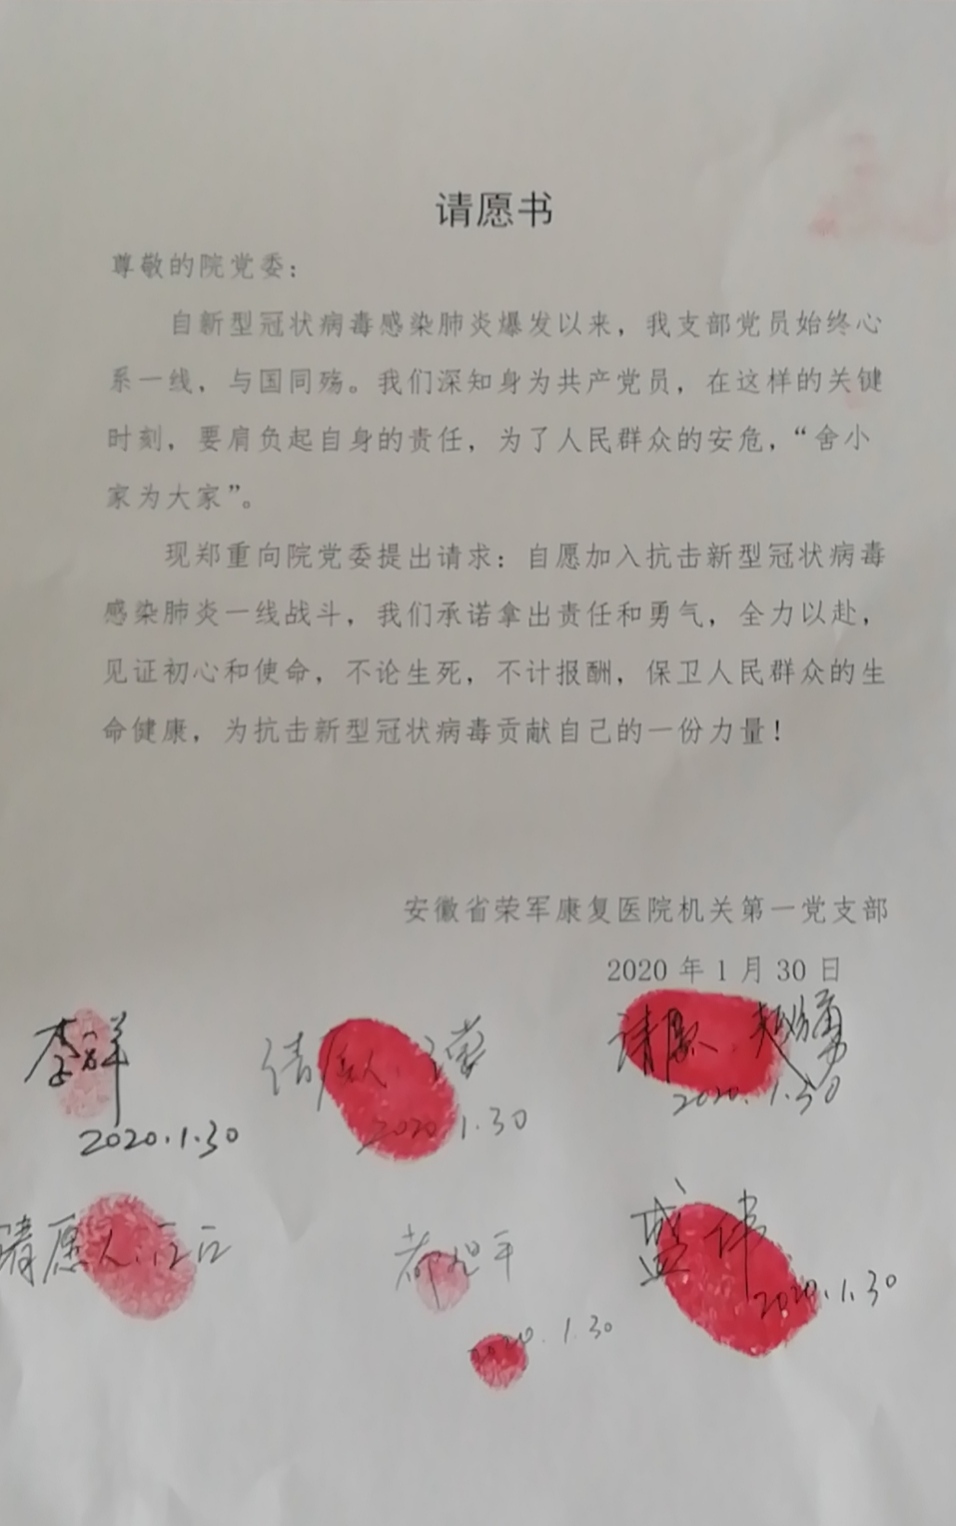 请愿书
尊敬的院党委：
自新型冠状病毒感染肺炎爆发以来，我支部党员始终心
系一线，与国同殇。我们深知身为共产党员，在这样的关键
时刻，要肩负起自身的责任，为了人民群众的安危，“舍小
家为大家”。
现郑重向院党委提出请求：自愿加入抗击新型冠状病毒
感染肺炎一线战斗，我们承诺拿出责任和勇气，全力以赴，
见证初心和使命，不论生死，不计报酬，保卫人民群众的生
命健康，为抗击新型冠状病毒贡献自己的一份力量！
安徽省荣军康复医院机关第一党支部
2020 年 1 月 30 日
李祥
2020.1.30
请愿人：
2020.1.30
请愿人：
2020.1.30
请愿人：
2020.1.30
盛伟
2020.1.30